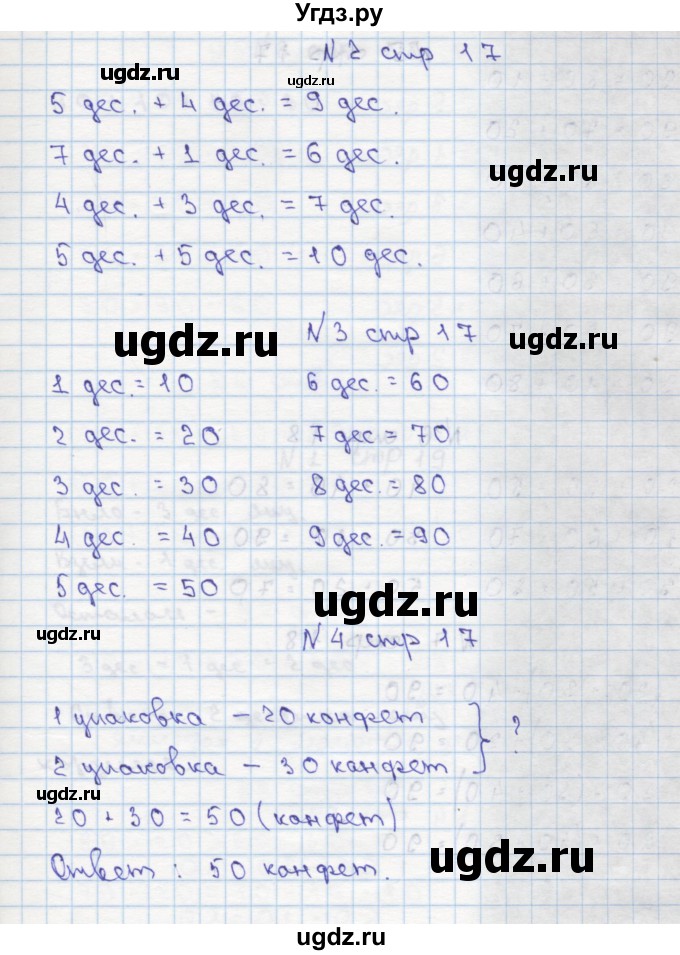 Угдз.ру
N 2 стр 17
ugdz.ru
ugdz.ru
5 дес. + 4 дес. = 9 дес.
7 дес. + 1 дес. = 6 дес.
ugdz.ru
4 дес. + 3 дес. = 7 дес.
5 дес. + 5 дес. = 10 дес.
ugdz.ru
N 3 стр 17
ugdz.ru
1 дес. = 10 6 дес. = 60
2 дес. = 20 7 дес = 70
3 дес. = 30 8 дес. = 80
4 дес. = 40 9 дес. = 90
5 дес. = 50
ugdz.ru
ugdz.ru
N 4 стр 17
1 упаковка – 20 конфет
?
2 упаковка – 30 канфет
20 + 30 = 50 (канфет)
Ответ : 50 канфет.
ugdz.ru
ugdz.ru